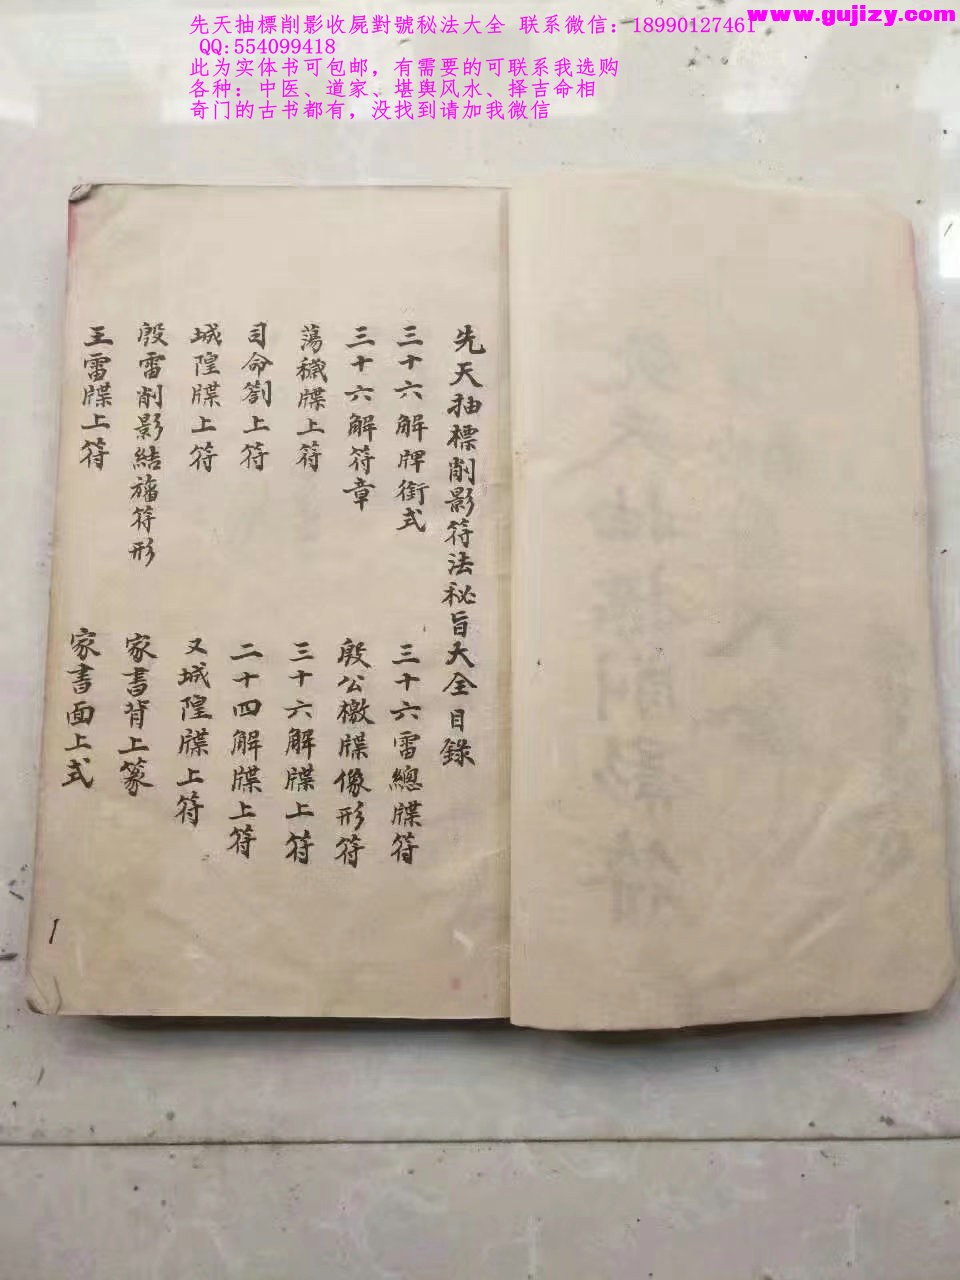 www.gujizy.com
先天抽標削影收屍對號秘法大全 联系微信：18990127461
QQ:554099418
此为实体书可包邮，有需要的可联系我选购
各种：中医、道家、堪舆风水、择吉命相
奇门的古书都有，没找到请加我微信
先天抽標削影符法秘旨大全目錄
三十六解牌銜式
三十六雷總牒符
三十六解符章
殷公檄牒像形符
蕩穢牒上符
三十六解牒上符
司命劄上符
二十四解牒上符
城隍牒上符
又城隍牒上符
殷雷削影結旛符形
家書背上篆
王雷牒上符
家書面上式
1